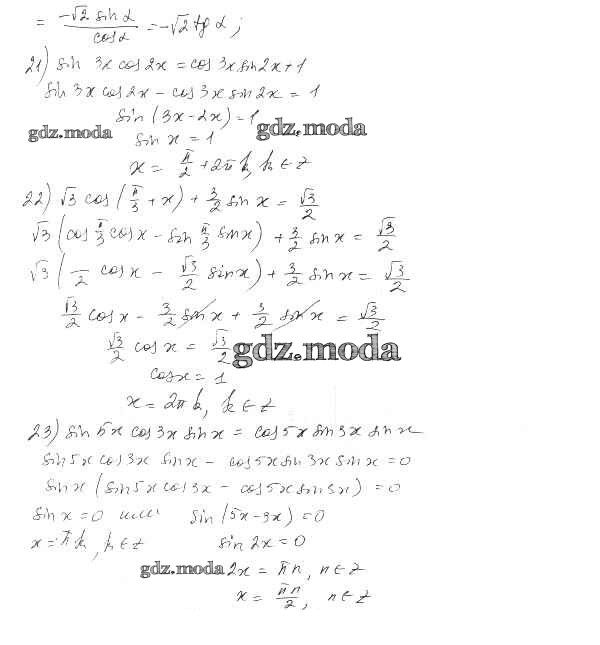 = -√2 sin α / cos α = -√2 tg α ;
21) sin 3x cos 2x = cos 3x sin 2x + 1
sin 3x cos 2x - cos 3x sin 2x = 1
sin (3x - 2x) = 1
gdz.moda gdz.moda
sin x = 1
x = π/2 + 2πk, k ∈ z
22) √3 cos (π/3 + x) + 3/2 sin x = √3/2
√3 (cos π/3 cos x - sin π/3 sin x) + 3/2 sin x = √3/2
√3 ( /2 cos x - √3/2 sin x) + 3/2 sin x = √3/2
√3/2 cos x - 3/2 sin x + 3/2 sin x = √3/2
√3/2 cos x = √3/2 gdz.moda
cos x = 1
x = 2πk, k ∈ z
23) sin 5x cos 3x sin x = cos 5x sin 3x sin x
sin 5x cos 3x sin x - cos 5x sin 3x sin x = 0
sin x (sin 5x cos 3x - cos 5x sin 3x) = 0
sin x = 0 или sin (5x - 3x) = 0
x = πk, k ∈ z sin 2x = 0
gdz.moda 2x = πn, n ∈ z
x = πn/2, n ∈ z